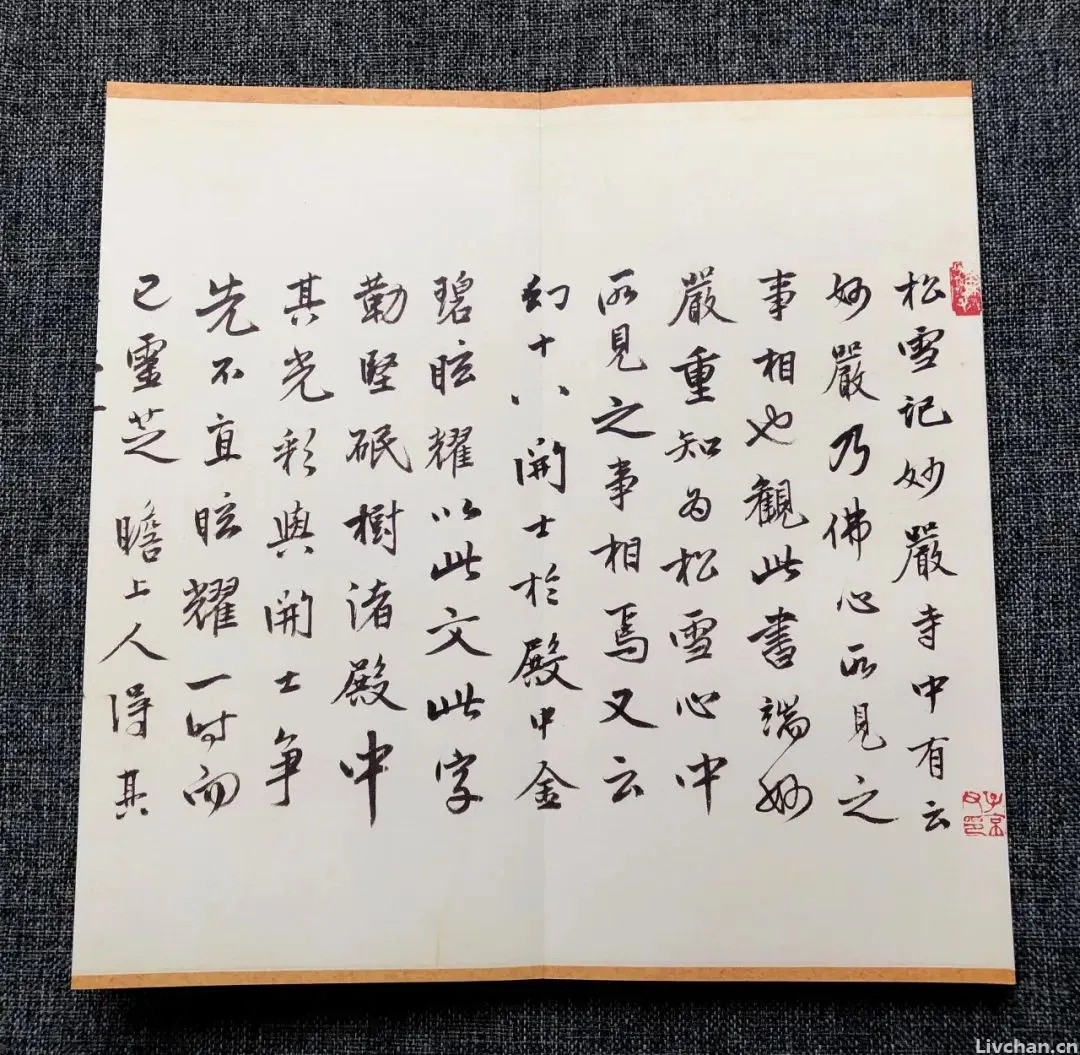 松雪记妙嚴寺中有云
妙嚴乃佛心所見之
事相也觀此書端妙
嚴重知為松雪心中
所見之事相焉又云
幻十八開士於殿中金
碧眩耀以此文此字
勒堅珉樹渚殿中
其光彩與開士争
先不直眩耀一时而
已靈芝瞻上人得其
子京父印
Livchan.cn